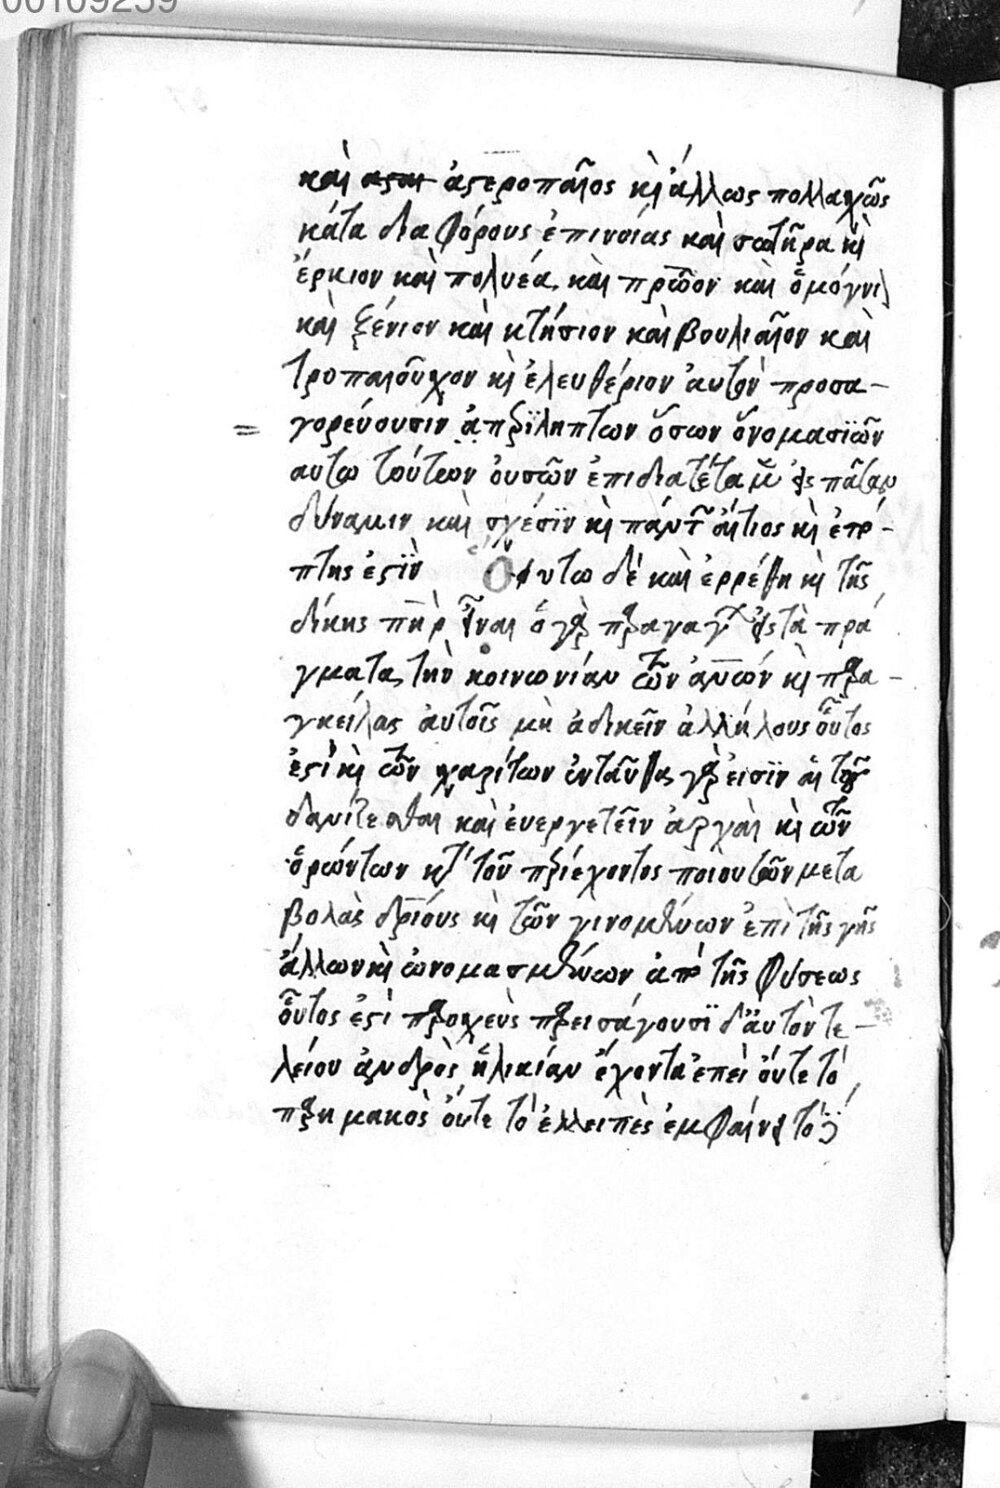 00109259
καὶ ἀστεροπαῖος κὶ ἄλλως πολλαχῶς
κάτα διαφόρους ἐπινοίας καὶ σωτῆρα κὶ
ἔρκιον καὶ πολυέα καὶ καὶ ὁμόγνι
καὶ ξένιον καὶ κτήσιον καὶ βουλιαῖον καὶ
τροπαιοῦχον κὶ ἐλευθέριον ἀυτὸν προσα-
γορεύουσιν ἀπεριλήπτων ὅσων ὀνομασϊῶν
αυτω τούτων ὀυσῶν ἐπιδιατέταται πᾶσαν
δύναμιν καὶ σχέσϊν κὶ πάντων ἀίτιος κὶ ἐπό-
πτης ἐστὶν Ὀυτω δὲ καὶ ἐρρέθη κὶ τῆς
δίκης πὴρ εἶναι ὁ γὰρ παραγαγὼν εἰς τὰ πρά
γματα τὴν κοινωνίαν τῶν ἀνων κὶ παρα-
γκείλας ἀυτοῖς μὴ ἀδικεῖν ἀλλήλους οὗτος
ἐστὶ κὶ τῶν χαρίτων ἐντεῦθεν γὰρ εἰσϊν ἁι τοῦ
χαρίζεσθαι καὶ ἐυεργετεῖν ἀρχαὶ κὶ τῶν
ὁρώντων κτ τοῦ περιέχοντος ποιουτῶν μετα
βολὰς δριόυς κὶ τῶν γινομένων ἐπὶ τῆς γῆς
ἄλλων κὶ ὠνομασμένων ἀπὸ τῆς φύσεως
οὗτος ἐστὶ παροχεὺς παρεισάγουσϊ δ' ἀυτὸν τε-
λείου ἀνδρὸς ἡλικίαν ἔχοντα ἐπεὶ ὀύτε τὸ
παρηκμακὸς ὀύτε τὸ ἐλλειπὲς ἐμφαίνει